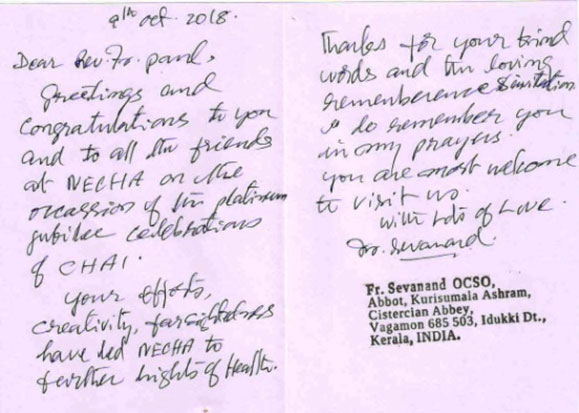 9th Oct. 2018.
Dear Rev. Fr. Paul,
Greetings and
Congratulations to you
and to all the friends
at NECHA on the
occassion of the platinum
jubilee celebrations
of CHAI.
Your efforts,
creativity, farsightedness
have led NECHA to
further hights of Health.
Thanks for your kind
words and the loving
rememberence & invitation
I do remember you
in my prayers.
You are most welcome
to visit us.
With lots of Love.
Fr. Sevanand.
Fr. Sevanand OCSO,
Abbot, Kurisumala Ashram,
Cistercian Abbey,
Vagamon 685 503, Idukki Dt.,
Kerala, INDIA.